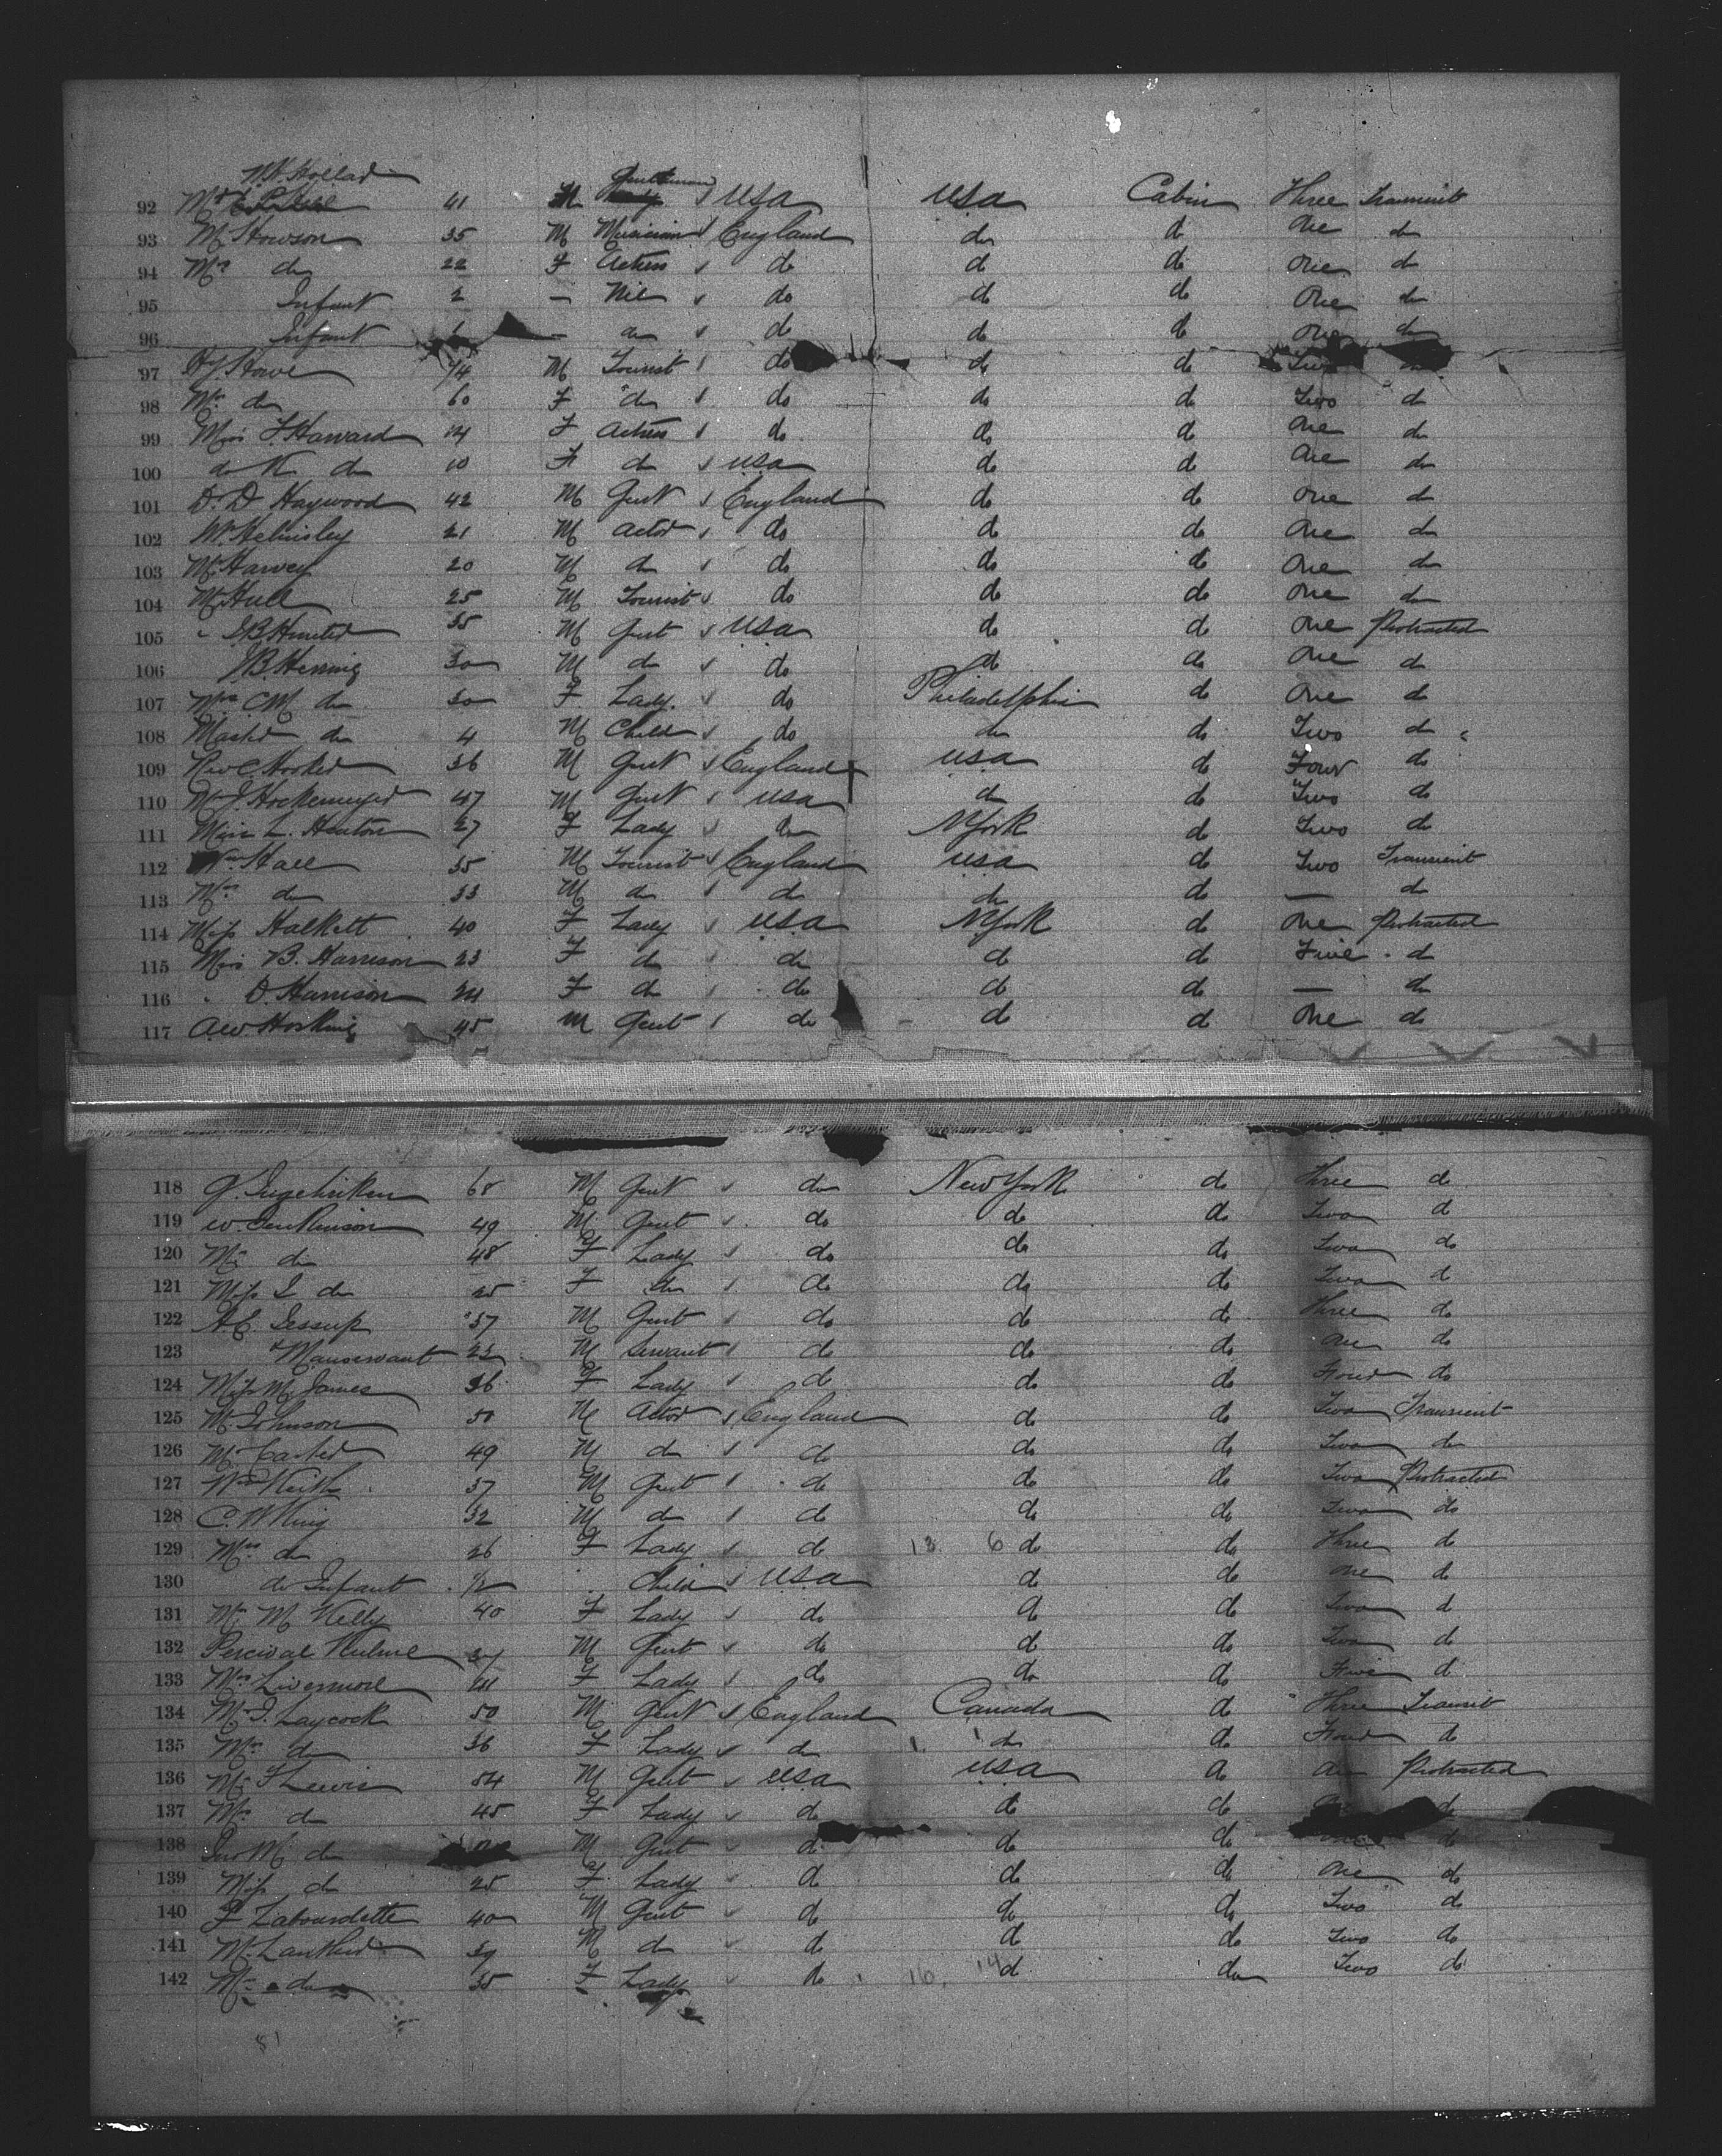 W. Hollad Gentleman
92 Mr 41 M USA USA Cabin Three Transient
93 Mr Howson 35 M Musician England do do One do
94 Mrs do 22 F Actress do do do One do
95 Infant 2 — Nil do do do One do
96 Infant — do do do do One do
97 Hy Howe 74 M Tourist do do do Two do
98 Mrs do 60 F do do do do Two do
99 Miss F Harward 14 F Actress do do do One do
100 do K do 10 F do USA do do One do
101 Dr D Haywood 42 M Gent England do do One do
102 Mr Helmsley 21 M Actor do do do One do
103 Mr Harvey 20 M do do do do One do
104 Mr Hull 25 M Tourist do do do One do
105 " 35 M Gent USA do do One Protracted
106 JB Herring 30 M do do do do One do
107 Mrs CM do 30 F Lady do Philadelphia do One do
108 Master do 4 M Child do do do Two do
109 Rev C Hooker 36 M Gent England USA do Four do
110 Mr J. Hockemeyer 47 M Gent USA do do Two do
111 Miss L. Henton 27 F Lady do N York do Two do
112 Wm Hall 35 M Tourist England USA do Two Transient
113 Mrs do 33 M do do do do — do
114 Miss Halkett 40 F Lady USA N York do One Protracted
115 Miss B. Harrison 23 F do do do do Five do
116 " D. Harrison 24 F do do do do — do
117 AW Hosking 45 M Gent do do do One do
118 68 M Gent do New York do Three do
119 W. Jenkinson 49 M Gent do do do Two do
120 Mrs do 48 F Lady do do do Two do
121 Miss I do 25 F do do do do Two do
122 AE. Jessup 37 M Gent do do do Three do
123 Manservant 23 M Servant do do do One do
124 Miss M James 36 F Lady do do do Four do
125 Mr Johnson 50 M Actor England do do Two Transient
126 Mr 49 M do do do do Two do
127 Wm Keith 37 M Gent do do do Two Protracted
128 C. W King 32 M do do do do Two do
129 Mrs do 26 F Lady do 13 6 do do Three do
130 do Infant 1/2 Child USA do do One do
131 M Kelly 40 F Lady do do do Two do
132 Percival M Gent do do do Two do
133 Mrs Livermore F Lady do do do Five do
134 Mr J. Laycock 50 M Gent England Canada do Three Transit
135 Mrs do 36 F Lady do do do Four do
136 Mr F Lewis 54 M Gent USA USA do One Protracted
137 Mrs do 45 F Lady do do do do
138 Jno M do M Gent do do do One do
139 Miss do 25 F Lady do do do One do
140 F Labourdette 40 M Gent do do do Two do
141 Mr 39 M do do do do Two do
142 Mrs do 35 F Lady do 16 14 do do Two do
81